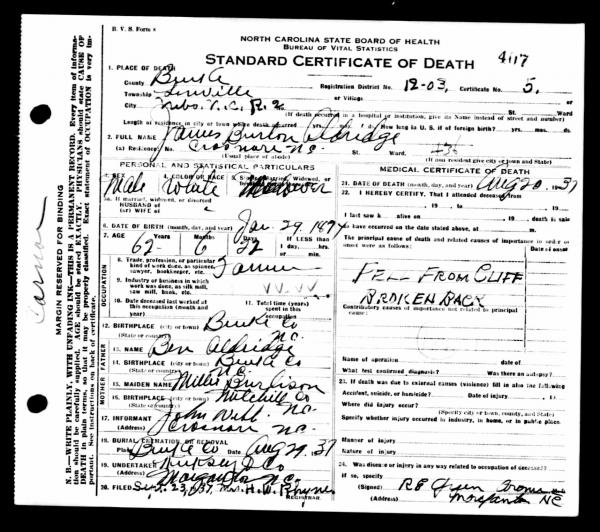 B. V. S. Form 8
NORTH CAROLINA STATE BOARD OF HEALTH
BUREAU OF VITAL STATISTICS
STANDARD CERTIFICATE OF DEATH
1. PLACE OF DEATH
County Burke
Registration District No. 12-03. Certificate No. 5.
Township Linville
or Village
City Nebo N.C. R. 2
St. Ward
(If death occurred in a hospital or institution, give its Name instead of street and number)
Length of residence in city or town where death occurred yrs. mos. ds. How long in U. S. if of foreign birth? yrs. mos. ds.
2. FULL NAME James Burton Aldridge
(a) Residence: No. Crossnore N.C. St. Ward.
(Usual place of abode) (If non resident give city or town and State)
PERSONAL AND STATISTICAL PARTICULARS
3. SEX 4. COLOR OR RACE 5. Single, Married, Widowed, or
Male White Widower
5a. If married, widowed, or divorced
HUSBAND of
(or) WIFE of
6. DATE OF BIRTH (month, day, and year) Jan. 29.
7. AGE Years Months Days If LESS than
62 6 22 1 day, hrs.
or min.
OCCUPATION
8. Trade, profession, or particular
kind of work done, as spinner,
sawyer, bookkeeper, etc. Farmer
9. Industry or business in which
work was done, as silk mill,
saw mill, bank, etc.
10. Date deceased last worked at
this occupation (month and
year)
11. Total time (years)
spent in this
occupation
12. BIRTHPLACE (city or town) Burke Co
(State or country) N.C.
FATHER
13. NAME Ben Aldridge
14. BIRTHPLACE (city or town) Burke Co
(State or country) N.C.
MOTHER
15. MAIDEN NAME Millie Burlison
16. BIRTHPLACE (city or town) Mitchell Co
(State or country) N.C.
17. INFORMANT John Webb
(Address) Crossnore N.C.
18. BURIAL, CREMATION OR REMOVAL
Place Burke Co Date Aug 29, 37
19. UNDERTAKER Kirksey & Co
(Address) Morganton N.C.
20. FILED Sept. 23, 1937 Mrs. H. W. Rhyne
MEDICAL CERTIFICATE OF DEATH
21. DATE OF DEATH (month, day, and year) Aug 20, 1937
22. I HEREBY CERTIFY, That I attended deceased from
, 19 , to , 19
I last saw h alive on , 19 death is said
to have occurred on the date stated above, at m.
The principal cause of death and related causes of importance in order
of onset were as follows: Date of onset
FELL FROM CLIFF
BROKEN BACK
Contributory causes of importance not related to principal
cause:
Name of operation date of
What test confirmed diagnosis? Was there an autopsy?
23. If death was due to external causes (violence) fill in also the following
Accident, suicide, or homicide? Date of injury 19
Where did injury occur?
(Specify city or town, county, and State)
Specify whether injury occurred in industry, in home, or in public place.
Manner of injury
Nature of injury
24. Was disease or injury in any way related to occupation of deceased?
If so, specify
(Signed) Coroner
(Address) Morganton NC
MARGIN RESERVED FOR BINDING
N. B.—WRITE PLAINLY, WITH UNFADING INK—THIS IS A PERMANENT RECORD. Every item of information
should be carefully supplied. AGE should be stated EXACTLY. PHYSICIANS should state CAUSE OF
DEATH in plain terms, so that it may be properly classified. Exact statement of OCCUPATION is very important.
See instructions on back of certificate.